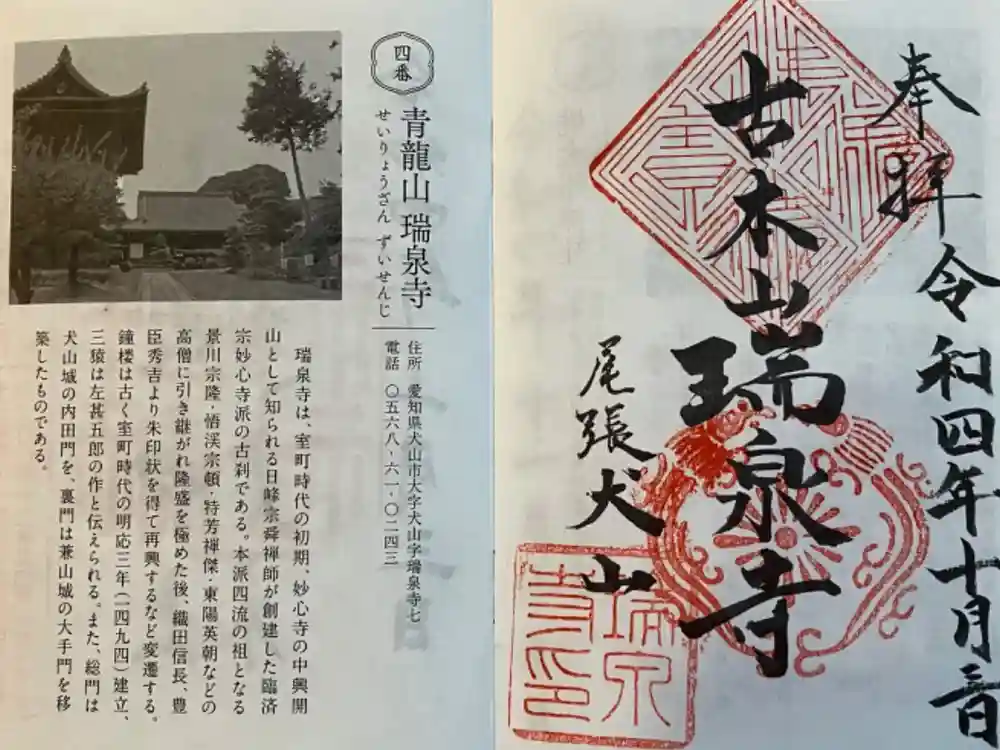 奉拝
令和四年十月
山瑞泉寺
尾張犬山
瑞泉
寺印
四番
青龍山 瑞泉寺
せいりょうざん ずいせんじ
住所 愛知県犬山市大字犬山字瑞泉寺七
電話 〇五六八-六一-〇二四三
瑞泉寺は、室町時代の初期、妙心寺の中興開
山として知られる日峰宗舜禅師が創建した臨済
宗妙心寺派の古刹である。本派四流の祖となる
景川宗隆・悟渓宗頓・特芳禅傑・東陽英朝などの
高僧に引き継がれ隆盛を極めた後、織田信長、豊
臣秀吉より朱印状を得て再興するなど変遷する。
鐘楼は古く室町時代の明応三年(一四九四)建立、
三猿は左甚五郎の作と伝えられる。また、総門は
犬山城の内田門を、裏門は兼山城の大手門を移
築したものである。